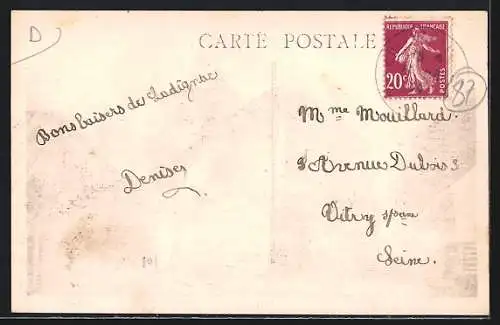 D
CARTE POSTALE
REPUBLIQUE FRANÇAISE
20c
POSTES
87
Bons baisers de Ladignac
Denise
Mme Mouillard.
Avenue Dubois
Vitry s/Seine
Seine.